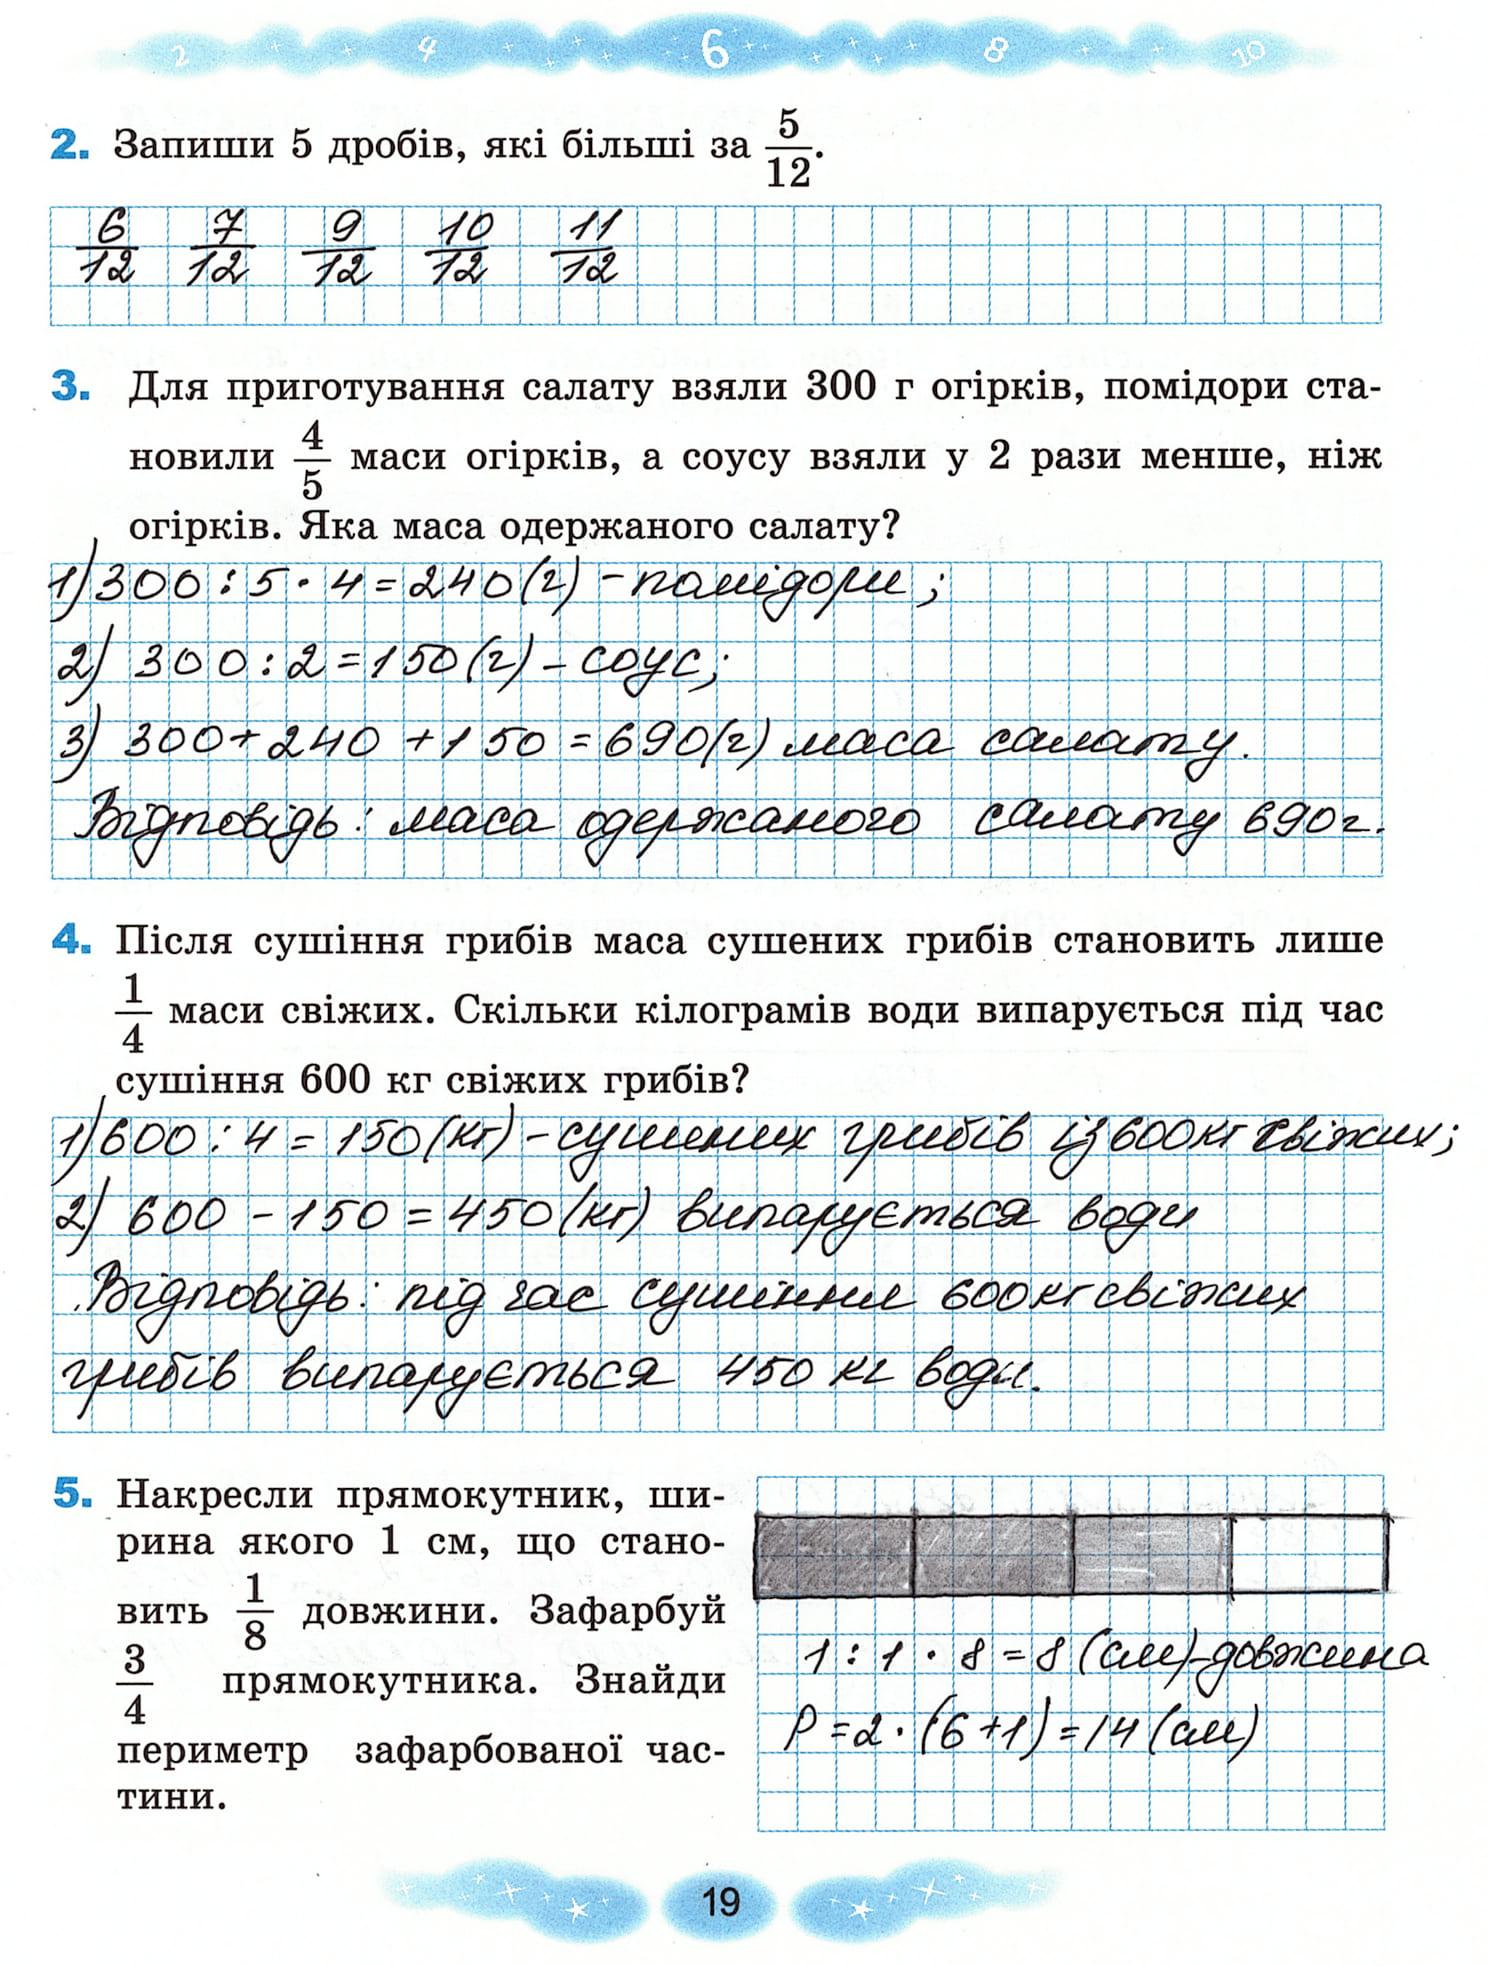 2 4 6 8 10
2. Запиши 5 дробів, які більші за 5/12.
6/12 7/12 9/12 10/12 11/12
3. Для приготування салату взяли 300 г огірків, помідори ста-
новили 4/5 маси огірків, а соусу взяли у 2 рази менше, ніж
огірків. Яка маса одержаного салату?
1) 300 : 5 · 4 = 240 (г) - помідори;
2) 300 : 2 = 150 (г) - соус;
3) 300 + 240 + 150 = 690 (г) маса салату.
Відповідь: маса одержаного салату 690 г.
4. Після сушіння грибів маса сушених грибів становить лише
1/4 маси свіжих. Скільки кілограмів води випарується під час
сушіння 600 кг свіжих грибів?
1) 600 : 4 = 150 (кг) - сушених грибів із 600 кг свіжих;
2) 600 - 150 = 450 (кг) випарується води
Відповідь: під час сушіння 600 кг свіжих
грибів випарується 450 кг води.
5. Накресли прямокутник, ши-
рина якого 1 см, що стано-
вить 1/8 довжини. Зафарбуй
3/4 прямокутника. Знайди
периметр зафарбованої час-
тини.
1 : 1 · 8 = 8 (см) - довжина
P = 2 · (6 + 1) = 14 (см)
19